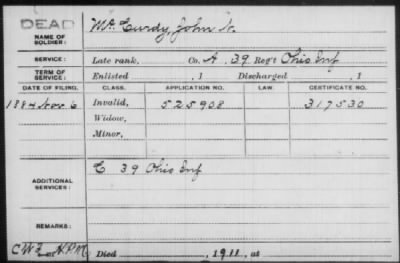 DEAD
NAME OF SOLDIER: McCurdy, John N.
SERVICE: Late rank, Co. A. 39 Reg't Ohio Inf
TERM OF SERVICE: Enlisted , 1 Discharged , 1
DATE OF FILING. CLASS. APPLICATION NO. LAW. CERTIFICATE NO.
1884 Nov 6 Invalid, 525908 317530
Widow,
Minor,
ADDITIONAL SERVICES: E 39 Ohio Inf
REMARKS:
Died , 1911, at